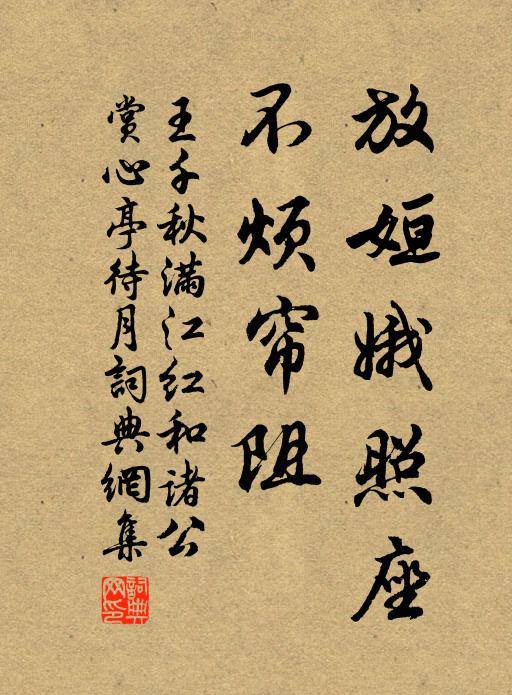 放姮娥照座
不烦帘阻
王千秋满江红和诸公
赏心亭待月词典網集